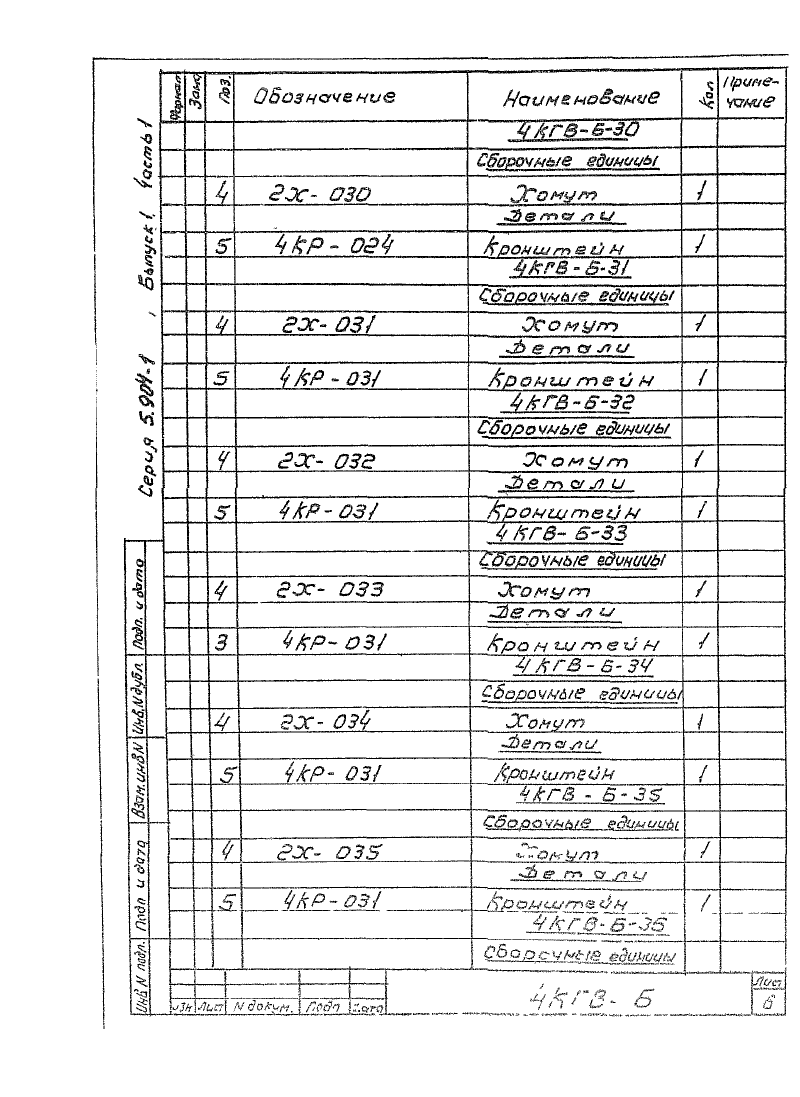 Серия 5.904-1 , Выпуск 1. Часть 1
Формат Зона Поз. Обозначение Наименование Кол Приме-
чание
4КГВ-Б-30
Сборочные единицы
4 2Х-030 Хомут 1
Детали
5 4КР-024 Кронштейн 1
4КГВ-Б-31
Сборочные единицы
4 2Х-031 Хомут 1
Детали
5 4КР-031 Кронштейн 1
4КГВ-Б-32
Сборочные единицы
4 2Х-032 Хомут 1
Детали
5 4КР-031 Кронштейн 1
4КГВ-Б-33
Сборочные единицы
4 2Х-033 Хомут 1
Детали
3 4КР-031 Кронштейн 1
4КГВ-Б-34
Сборочные единицы
4 2Х-034 Хомут 1
Детали
5 4КР-031 Кронштейн 1
4КГВ-Б-35
Сборочные единицы
4 2Х-035 Хомут 1
Детали
5 4КР-031 Кронштейн 1
4КГВ-Б-35
Сборочные единицы
Подп. и дата
Инв.N дубл.
Взам.инвN
Подп и дата
Инв N подл.
Изм Лист N докум. Подп Дата
4КГВ-Б
Лист
6